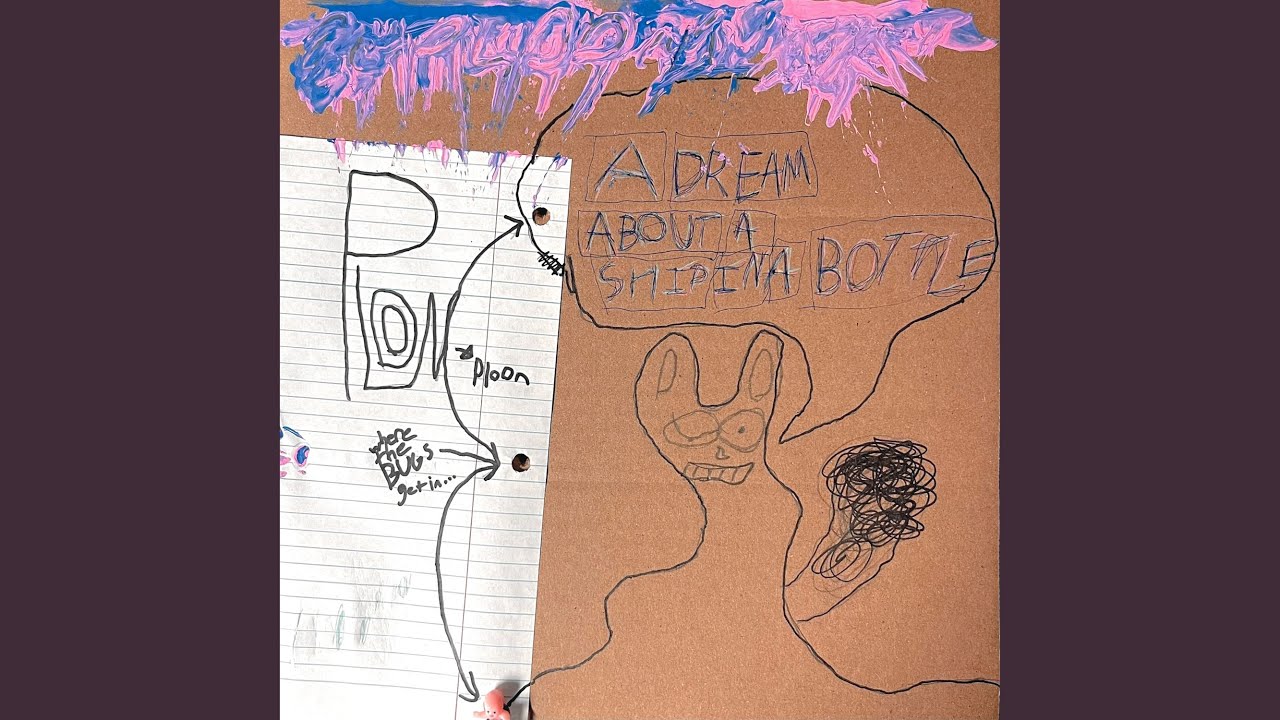 A DREAM
ABOUT A
SHIP IN A BOTTLE
Ploon
where
the
BUGS
get in...